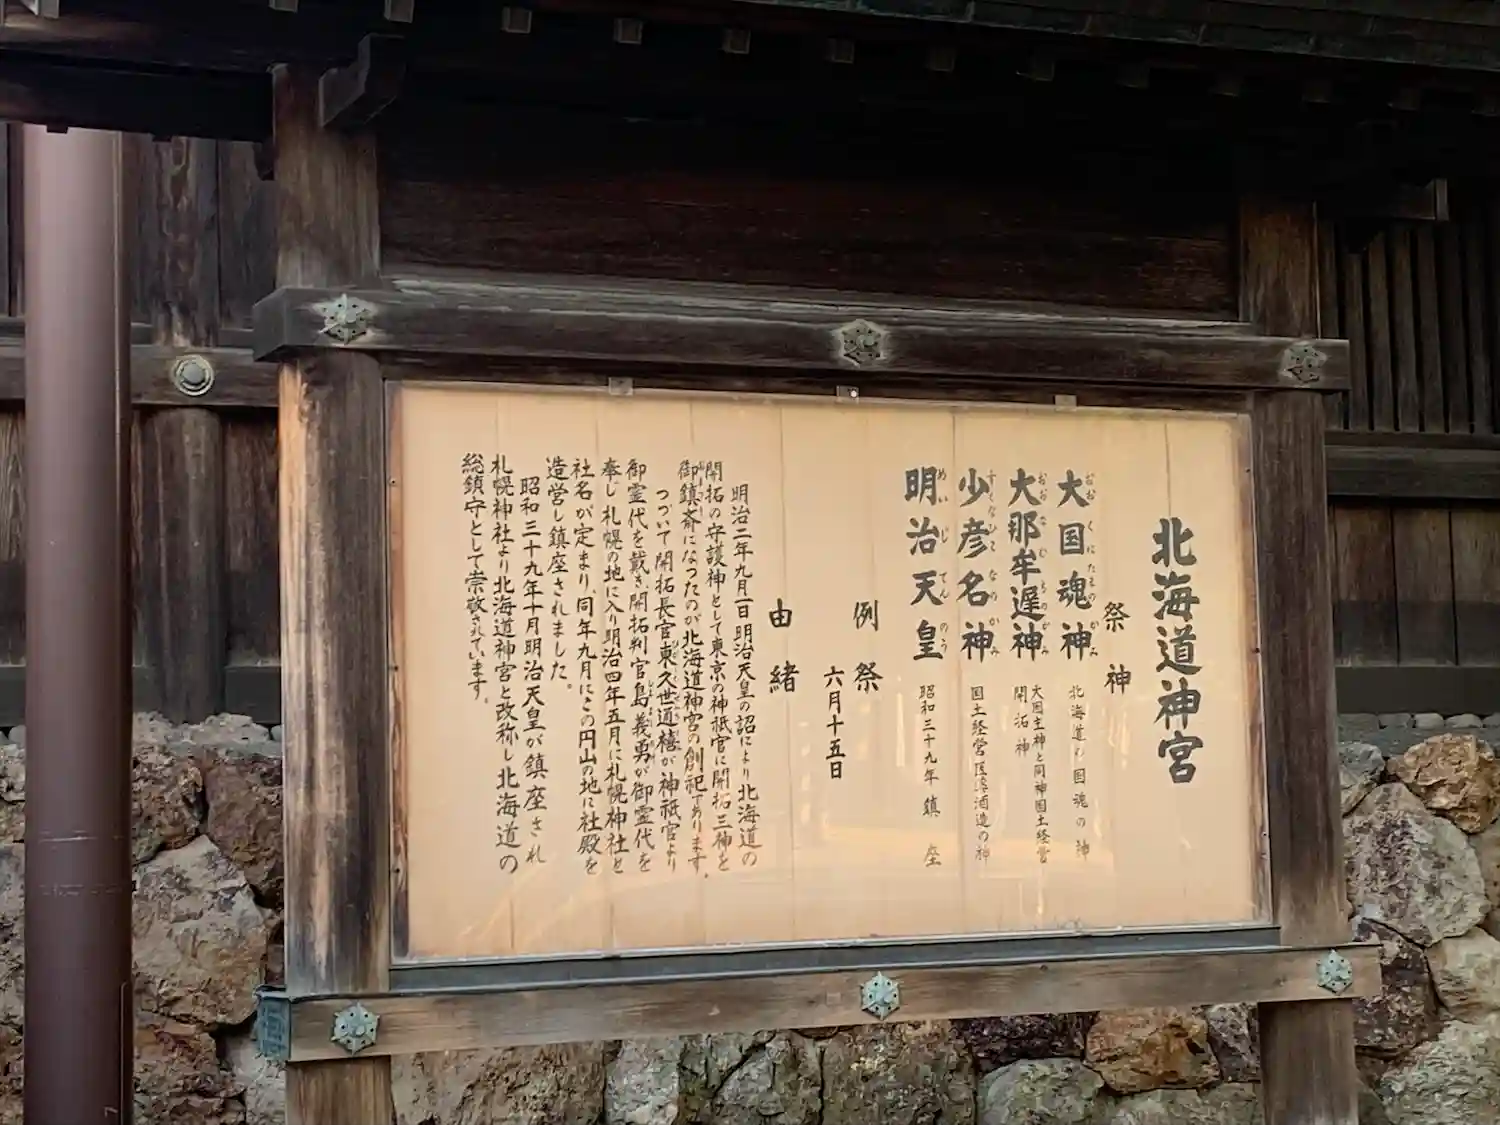 北海道神宮
祭神
大国魂神 北海道の国魂の神
おおくにたまのかみ
大那牟遅神 大国主神と同神国土経営
開拓神
おおなむちのかみ
少彦名神 国土経営医薬酒造の神
すくなひこなのかみ
明治天皇 昭和三十九年鎮座
めいじてんのう
例祭
六月十五日
由緒
明治二年九月一日明治天皇の詔により北海道の
開拓の守護神として東京の神祇官に開拓三神を
御鎮斎になったのが北海道神宮の創祀であります。
つづいて開拓長官東久世通禧が神祇官より
御霊代を戴き、開拓判官島義勇が御霊代を
奉じ札幌の地に入り明治四年五月に札幌神社と
社名が定まり、同年九月にこの円山の地に社殿を
造営し鎮座されました。
昭和三十九年十月明治天皇が鎮座され
札幌神社より北海道神宮と改称し北海道の
総鎮守として崇敬されています。